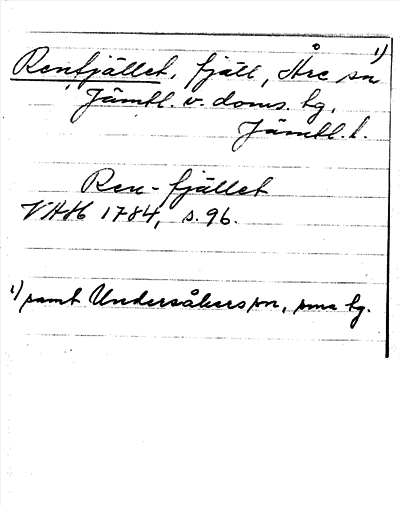 Renfjället, fjäll, Åre sn 1)
Jämtl. v. doms. tg,
Jämtl. l.
Ren-fjället
VAH 1784, s. 96.
1) samt Undersåkers sn, sma tg.